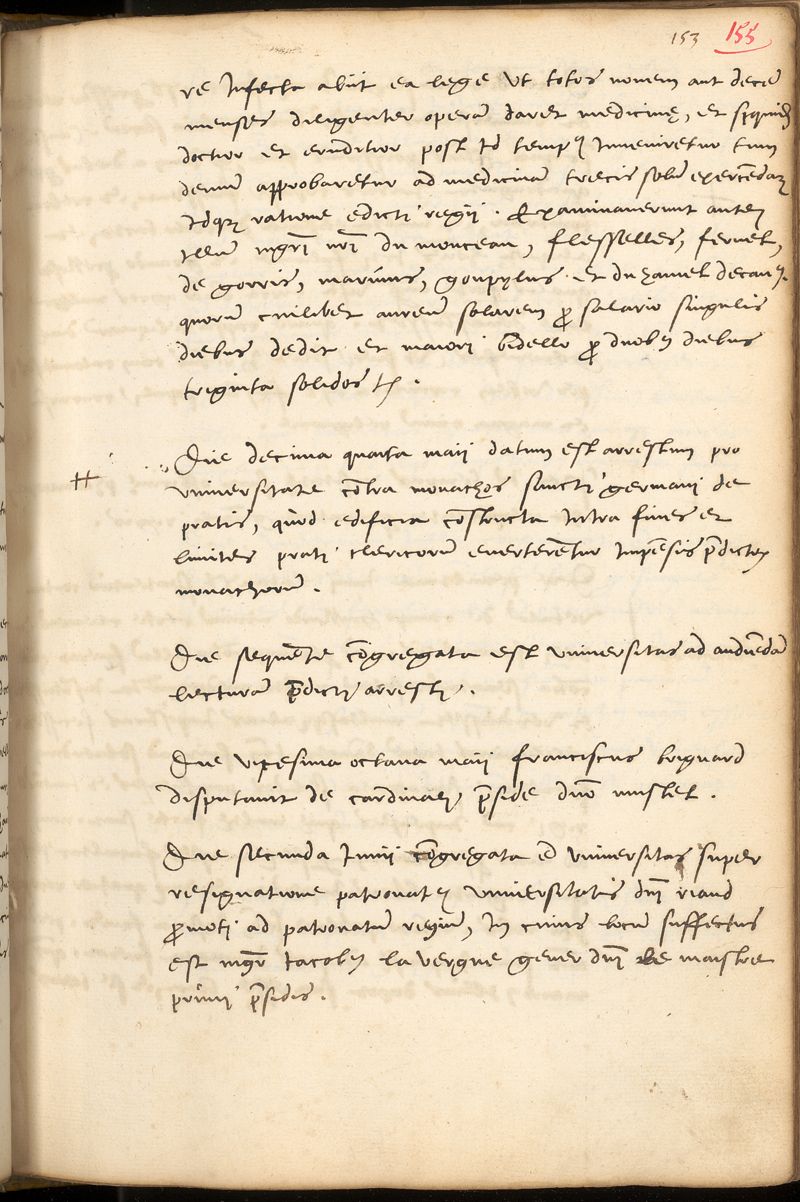 153 155
re Infecta abiit ea lege Ut totos novem aut decē
menses diligenter operā daret medicinę, et
doctior et eruditior post id temp9 Inveniretur tum
demū approbaretur ad medicinā trecis solū exercēdā
Idq3 ratione edicti regij. Examinaverunt autē
illum mgri nri du monceau, flesselles, fernel,
de gorris, marinus, goupylus et duhamel decan9.
quorū cuilibet aureū solarem p salario singulis
diebus dedit et maiori bidello p duob9 diebus
triginta solidos t.
Die decima quarta maij datum est arrestum pro
universitate cōtra monachos sancti germani de
pratis, quod edificia cōstructa Intra fines et
limites prati clericorū everterētur Impēsis pdictor
monachorū.
Die sequēte cōgregata est Universitas ad audiēdā
lecturā pdicti arresti.
Die vigesima octava maij franciscus briguard
disputavit de cardinali, pside dno mustel.
Die secunda Junij cōgregata ē Universitas super
resignatione patronat9 Universitatis dni riand
pmoti ad patronatū regiū, In cuius locū suffectus
est mgr Jacob9 la vergne gener dni le maistre
primi psidis.